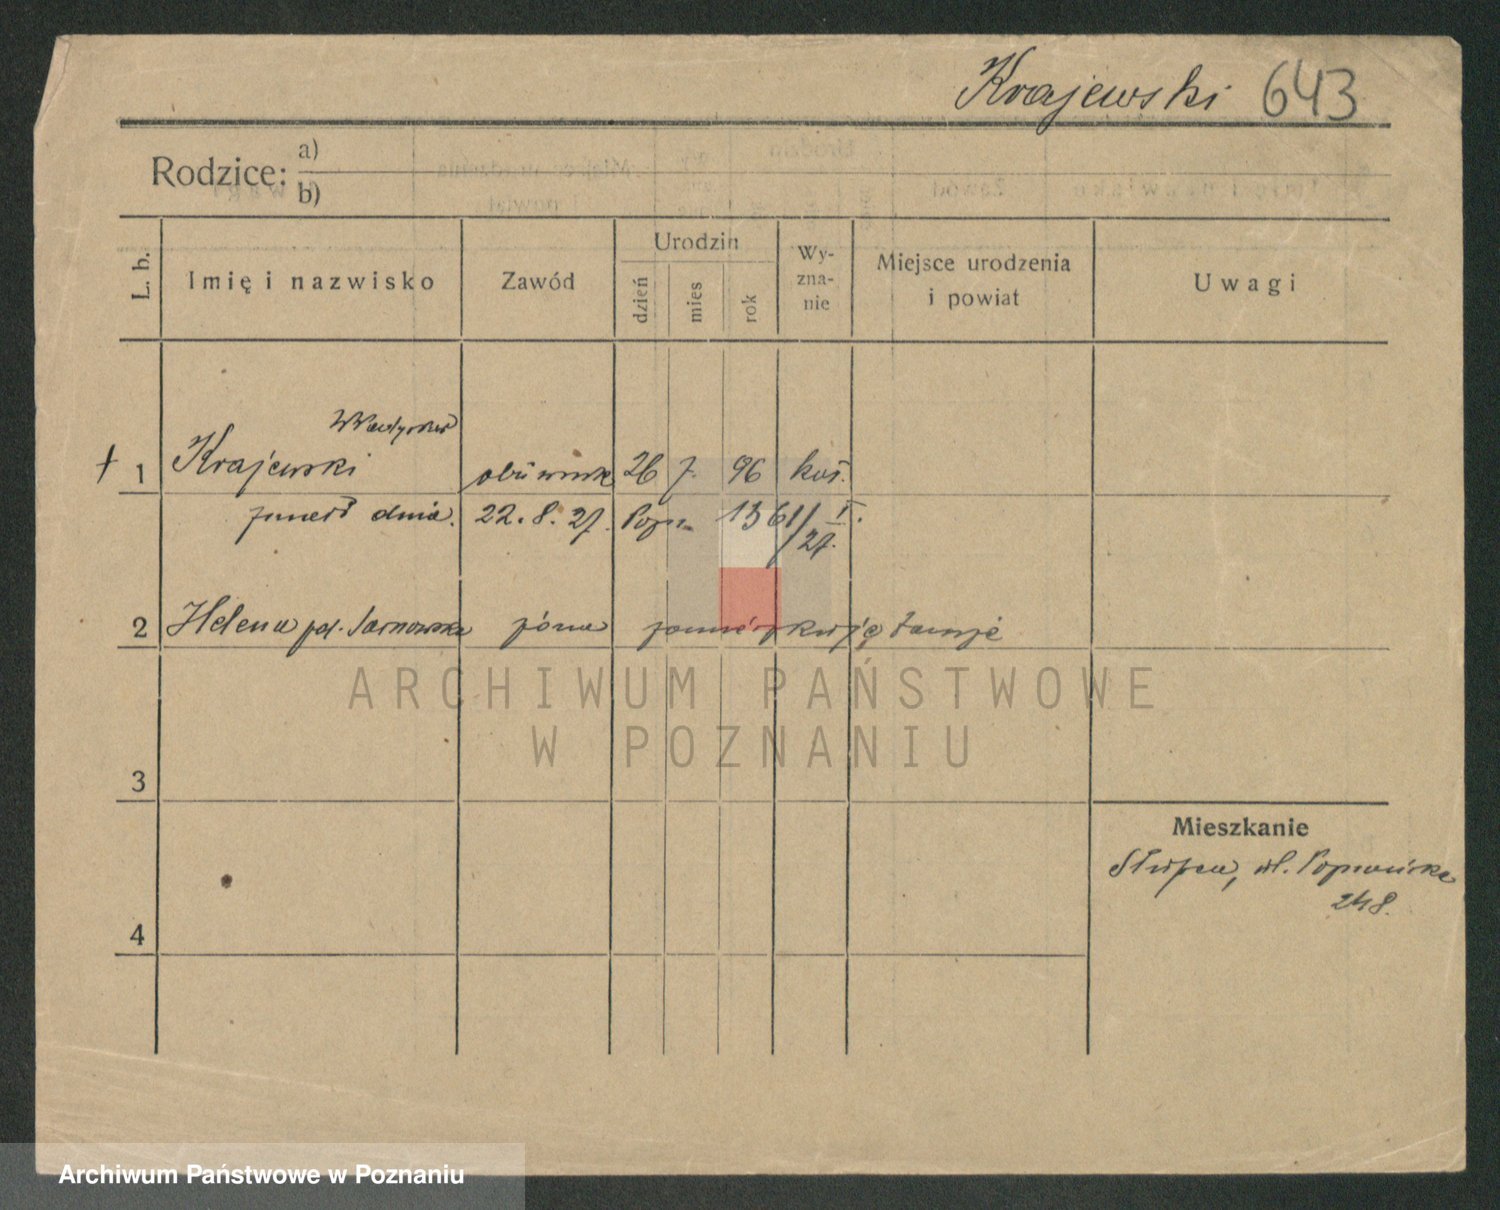 Krajewski 643
Rodzice: a)
b)
L. b. Imię i nazwisko Zawód Urodzin dzień mies rok Wy-zna-nie Miejsce urodzenia i powiat Uwagi
Władysław
† 1 Krajewski 26 7. 96 kat.
zmarł dnia. 22. 8. 27. Pozn. 1361/I.
27.
2 Helena żona zamieszkuję tamże
3
Mieszkanie
Słupca, ul. Poznańska
248.
4
ARCHIWUM PAŃSTWOWE
W POZNANIU
Archiwum Państwowe w Poznaniu